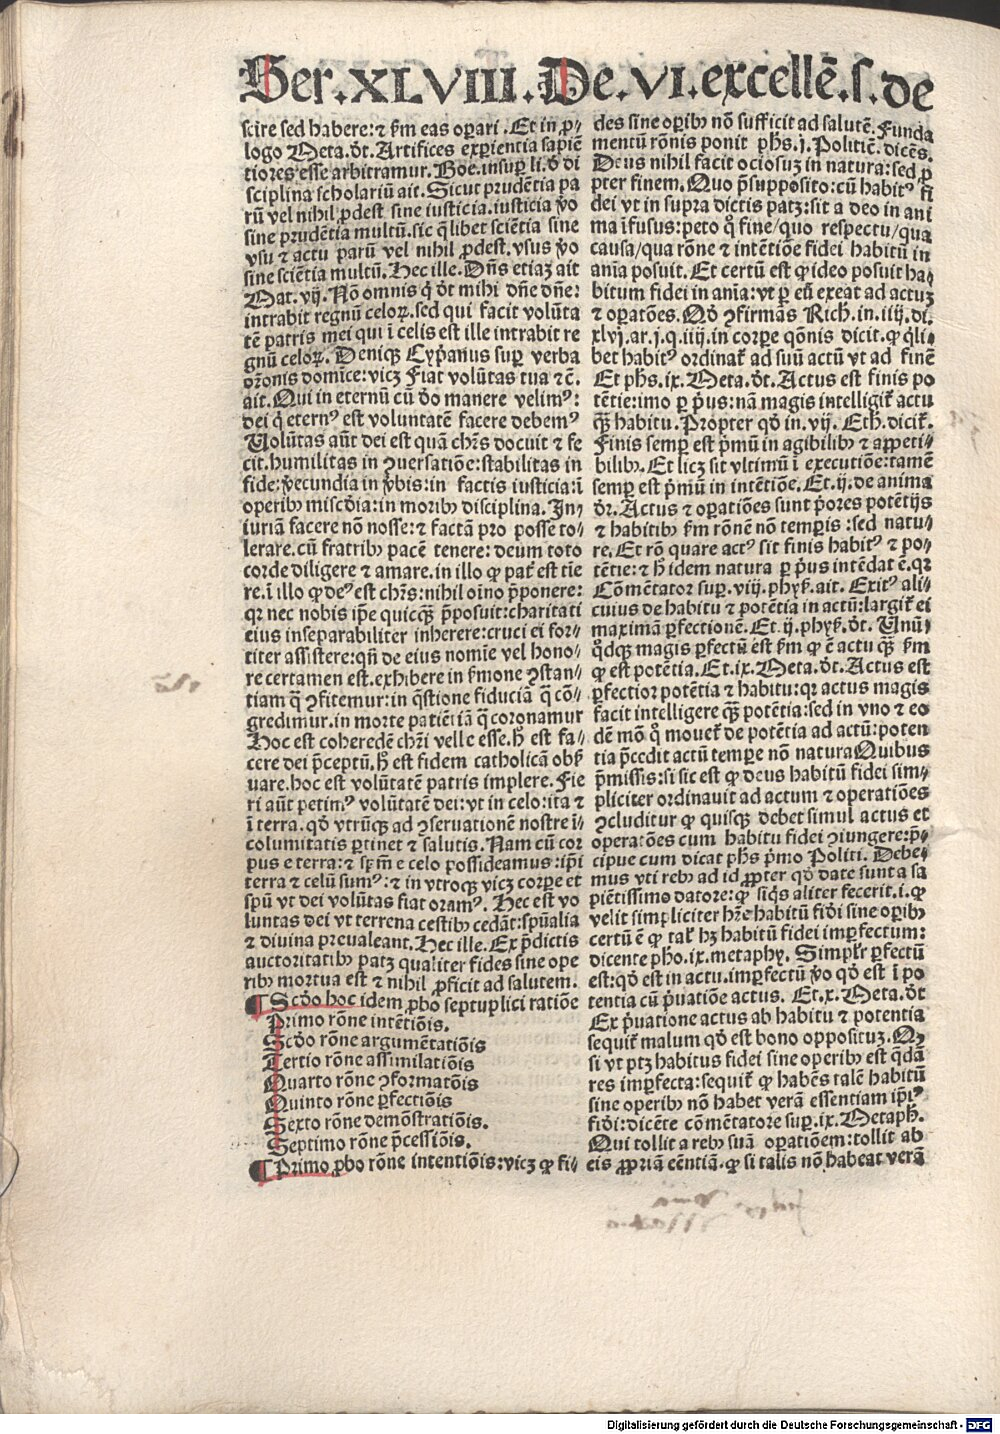 Ser.XLVIII.De.VI.excellẽ.s.de
scire sed habere:⁊ ẜm eas oꝑari.Et in ꝓ⸗
logo Meta.d̃t.Artifices exꝑientia sapiẽ
tiores esse arbitramur.Boe.insuꝑ li.d̃ di
sciplina scholariũ ait.Sicut prudẽtia pa
rũ vel nihil ꝓdest sine iusticia.iusticia ṽo
sine prudẽtia multũ.sic q̃libet sciẽtia sine
vsu ⁊ actu parũ vel nihil ꝓdest.vsus ṽo
sine sciẽtia multũ.Hec ille.Dñs etiaꝫ ait
Mat.vij.Nõ omnis q̇ d̃t mihi dñe dñe:
intrabit regnũ celoꝝ.sed qui facit volũta
tẽ patris mei qui ĩ celis est ille intrabit re
gnũ celoꝝ.Deniqꝫ Cyp̃anus suꝑ verba
or̃onis domĩce:vicꝫ Fiat volũtas tua ⁊c̃.
ait.Qui in eternũ cũ d̃o manere velimꝰ:
dei q̇ eternꝰ est voluntatẽ facere debemꝰ
Volũtas aũt dei est quã chr̃s docuit ⁊ fe
cit.humilitas in ꝯuersatiõe:stabilitas in
fide:ṽecundia in ṽbis:in factis iusticia:ĩ
operibꝫ misc̃dia:in moribꝫ disciplina.In⸗
iuriã facere nõ nosse:⁊ factã pro posse to⸗
lerare.cũ fratribꝫ pacẽ tenere:deum toto
corde diligere ⁊ amare.in illo ꝙ pat̃ est tĩe
re.ĩ illo ꝙ deꝰ est chr̃s:nihil oĩno p̃ponere:
qꝛ nec nobis ip̃e quicqꝫ p̃posuit:charitati
eius inseparabiliter inherere:cruci ei for⸗
titer assistere:qñ de eius nomĩe vel hono⸗
re certamen est.exhibere in ẜmone ꝯstan⸗
tiam q̃ ꝯfitemur:in q̃stione fiduciã q̃ cõ⸗
gredimur.in morte patiẽtiã q̃ coronamur
Hoc est coheredẽ chr̃i velle esse.h̃ est fa⸗
cere dei p̃ceptũ.h̃ est fidem catholicã obẜ
uare.hoc est volũtatẽ patris implere.Fie
ri aũt petimꝰ volũtatẽ dei:vt in celo:ita ⁊
ĩ terra.qd̃ vtrũqꝫ ad ꝯseruationẽ nostre ĩ⸗
columitatis ꝑtinet ⁊ salutis.Nam cũ cor
pus e terra:⁊ sp̃m e celo possideamus:ip̃i
terra ⁊ celũ sumꝰ:⁊ in vtroqꝫ vicꝫ corꝑe et
sp̃u vt dei volũtas fiat oramꝰ.Hec est vo
luntas dei vt terrena celestibꝫ cedãt:sp̃ualia
⁊ diuina preualeant.Hec ille.Ex p̃dictis
auctoritatibꝫ patꝫ qualiter fides sine ope
ribꝫ mortua est ⁊ nihil ꝓficit ad salutem.
¶Scd̃o hoc idem ꝓbo septuplici ratiõe
Primo rõne intẽtiõis.
Scd̃o rõne argumẽtatiõis
Tertio rõne assimilatiõis
Quarto rõne ꝯformatõis
Quinto rõne ꝑfectiõis
Sexto rõne demõstratiõis.
Septimo rõne p̃cessiõis.
¶Primo ꝓbo rõne intentiõis:vicꝫ ꝙ fi⸗
des sine oꝑibꝫ nõ sufficit ad salutẽ.Funda
mentũ rõnis ponit ph̃s.j.Politiẽ.dicẽs.
Deus nihil facit ociosuꝫ in natura:sed ꝓ
pter finem.Quo p̃supposito:cũ habitꝰ fi
dei vt in supra dictis patꝫ:sit a deo in ani
ma ĩfusus:peto q̊ fine/quo respectu/qua
causa/qua rõne ⁊ intẽtiõe fidei habitũ in
anĩa posuit.Et certũ est ꝙ ideo posuit ha⸗
bitum fidei in anĩa:vt ꝑ eũ exeat ad actuꝫ
⁊ oꝑatões.Qd̃ ꝯfirmãs Rich̃.in.iiij.di.
xlvj.ar.j.q.iiij.in corꝑe qõnis dicit.ꝙ q̇li⸗
bet habitꝰ ordinat̃ ad suũ actũ vt ad finẽ
Et ph̃s.ix.Meta.d̃t.Actus est finis po
tẽtie:imo ꝑ p̃us:nã magis intelligit̃ actu
qꝫ habitu.Propter qd̃ in.vij.Eth̃.dicit̃.
Finis semꝑ est p̃mũ in agibilibꝫ ⁊ appeti⸗
bilibꝫ.Et licꝫ sit vltimũ ĩ executiõe:tamẽ
semꝑ est p̃mũ in intẽtiõe.Et.ij.de anima
d̃r.Actus ⁊ oꝑatiões sunt p̃ores potẽtijs
⁊ habitibꝫ ẜm rõnẽ nõ temꝑis:sed natu⸗
re.Et rõ quare actꝰ sit finis habitꝰ ⁊ po⸗
tẽtie:⁊ h̃ idem natura ꝑ p̃us intẽdat ẽ.qꝛ
Cõmẽtator suꝑ.viij.phyẜ.ait.Exitꝰ ali⸗
cuius de habitu ⁊ potẽtia in actũ:largit̃ ei
maximã ꝑfectionẽ.Et.ij.phyẜ.d̃t.Unũ⸗
q̊dqꝫ magis ꝑfectũ est ẜm ꝙ ẽ actu qꝫ ẜm
ꝙ est potẽtia.Et.ix.Meta.d̃t.Actus est
ꝑfectior potẽtia ⁊ habitu:qꝛ actus magis
facit intelligere qꝫ potẽtia:sed in vno ⁊ eo
dẽ mõ q̊ mouet̃ de potẽtia ad actũ:poten
tia p̃cedit actũ temꝑe nõ natura Quibus
p̃missis:si sic est ꝙ deus habitũ fidei sim⸗
pliciter ordinauit ad actum ⁊ operatiões
ꝯcluditur ꝙ quisqꝫ debet simul actus et
operatões cum habitu fidei ꝯiungere:p̃⸗
cipue cum dicat ph̃s p̃mo Politi.Debe⸗
mus vti rebꝫ ad id ꝓpter qd̃ date sunt a sa
piẽtissimo datore:ꝙ siq̇s aliter fecerit.i.ꝙ
velit simpliciter hr̃e habitũ fid̃i sine oꝑibꝫ
certũ ẽ ꝙ tal̃ hꝫ habitũ fidei imꝑfectum:
dicente pho.ix.metaphy.Simpl̃r ꝑfectũ
est:qd̃ est in actu.imꝑfectũ ṽo qd̃ est ĩ po
tentia cũ p̃uatiõe actus.Et.x.Meta.d̃t
Ex p̃uatione actus ab habitu ⁊ potentia
sequit̃ malum qd̃ est bono oppositũ.Qꝫ
si vt ptꝫ habitus fidei sine operibꝫ est q̃dã
res imꝑfecta:sequit̃ ꝙ habẽs talẽ habitũ
sine operibꝫ nõ habet verã essentiam ip̃iꝰ
fid̃i:dicẽte cõmẽtatore suꝑ.ix.Metaph̃.
Qui tollit a rebꝫ suã oꝑatiõem:tollit ab
eis ꝓpriã eẽntiã.ꝙ si talis nõ habeat verã
Digitalisierung gefördert durch die Deutsche Forschungsgemeinschaft - DFG